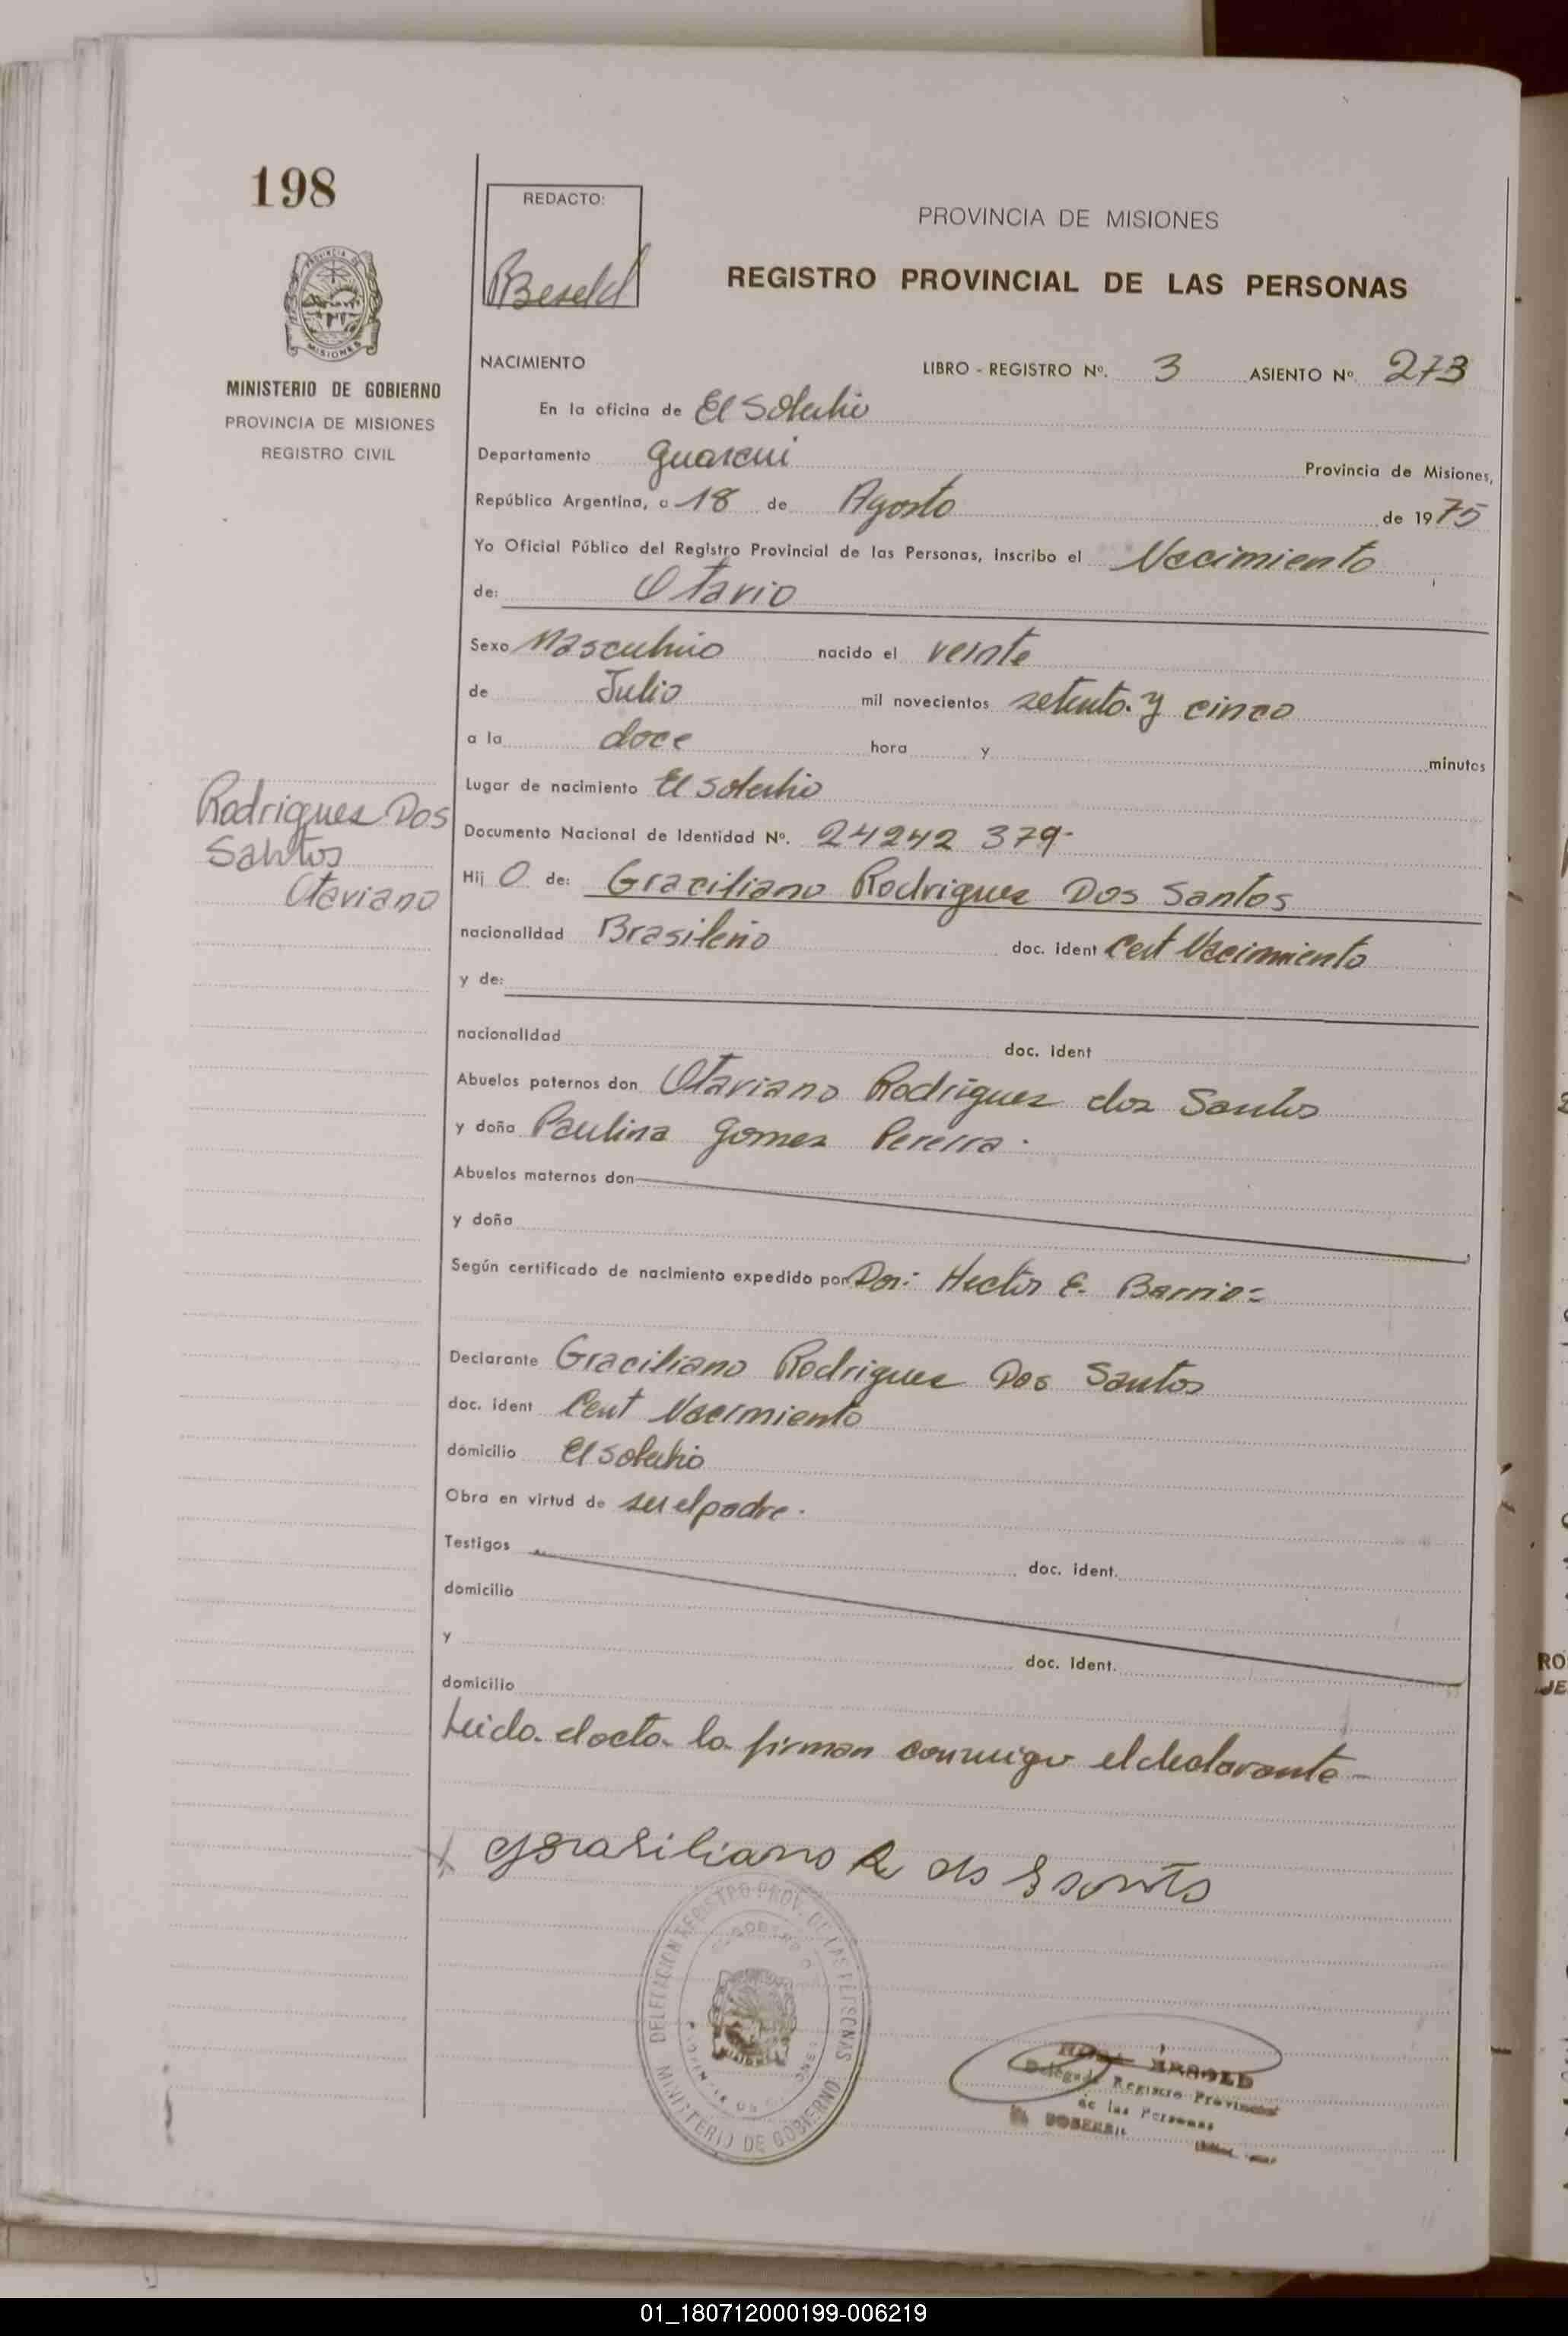 198
REDACTO:
PROVINCIA DE MISIONES
REGISTRO PROVINCIAL DE LAS PERSONAS
MISIONES
MINISTERIO DE GOBIERNO
PROVINCIA DE MISIONES
REGISTRO CIVIL
NACIMIENTO LIBRO - REGISTRO Nº. 3 ASIENTO Nº. 273
En la oficina de El Soberbio
Departamento Guarani Provincia de Misiones,
República Argentina, a 18 de Agosto de 1975
Yo Oficial Público del Registro Provincial de las Personas, inscribo el Nacimiento
de: Otavio
Sexo Masculino nacido el veinte
de Julio mil novecientos setenta y cinco
a la doce hora y minutos
Lugar de nacimiento El Soberbio
Rodrigues Dos
Santos
Otaviano
Documento Nacional de Identidad Nº. 24242 379-
Hij O de: Graciliano Rodrigues Dos Santos
nacionalidad Brasileño doc. ident Cert Nacimiento
y de:
nacionalidad doc. ident
Abuelos paternos don Otaviano Rodrigues dos Santos
y doña Paulina Gomes Pereira.
Abuelos maternos don
y doña
Según certificado de nacimiento expedido por Dor: Hector E. Barrio=
Declarante Graciliano Rodrigues Dos Santos
doc. ident Cert Nacimiento
domicilio El Soberbio
Obra en virtud de ser el padre.
Testigos doc. ident.
domicilio
y doc. ident.
domicilio
Leida el acta la firman conmigo el declarante-
Grasiliano R dos Santos
DELEGACION REGISTRO PROV. DE LAS PERSONAS
MINISTERIO DE GOBIERNO
Registro Provincial
de las Personas
01_180712000199-006219